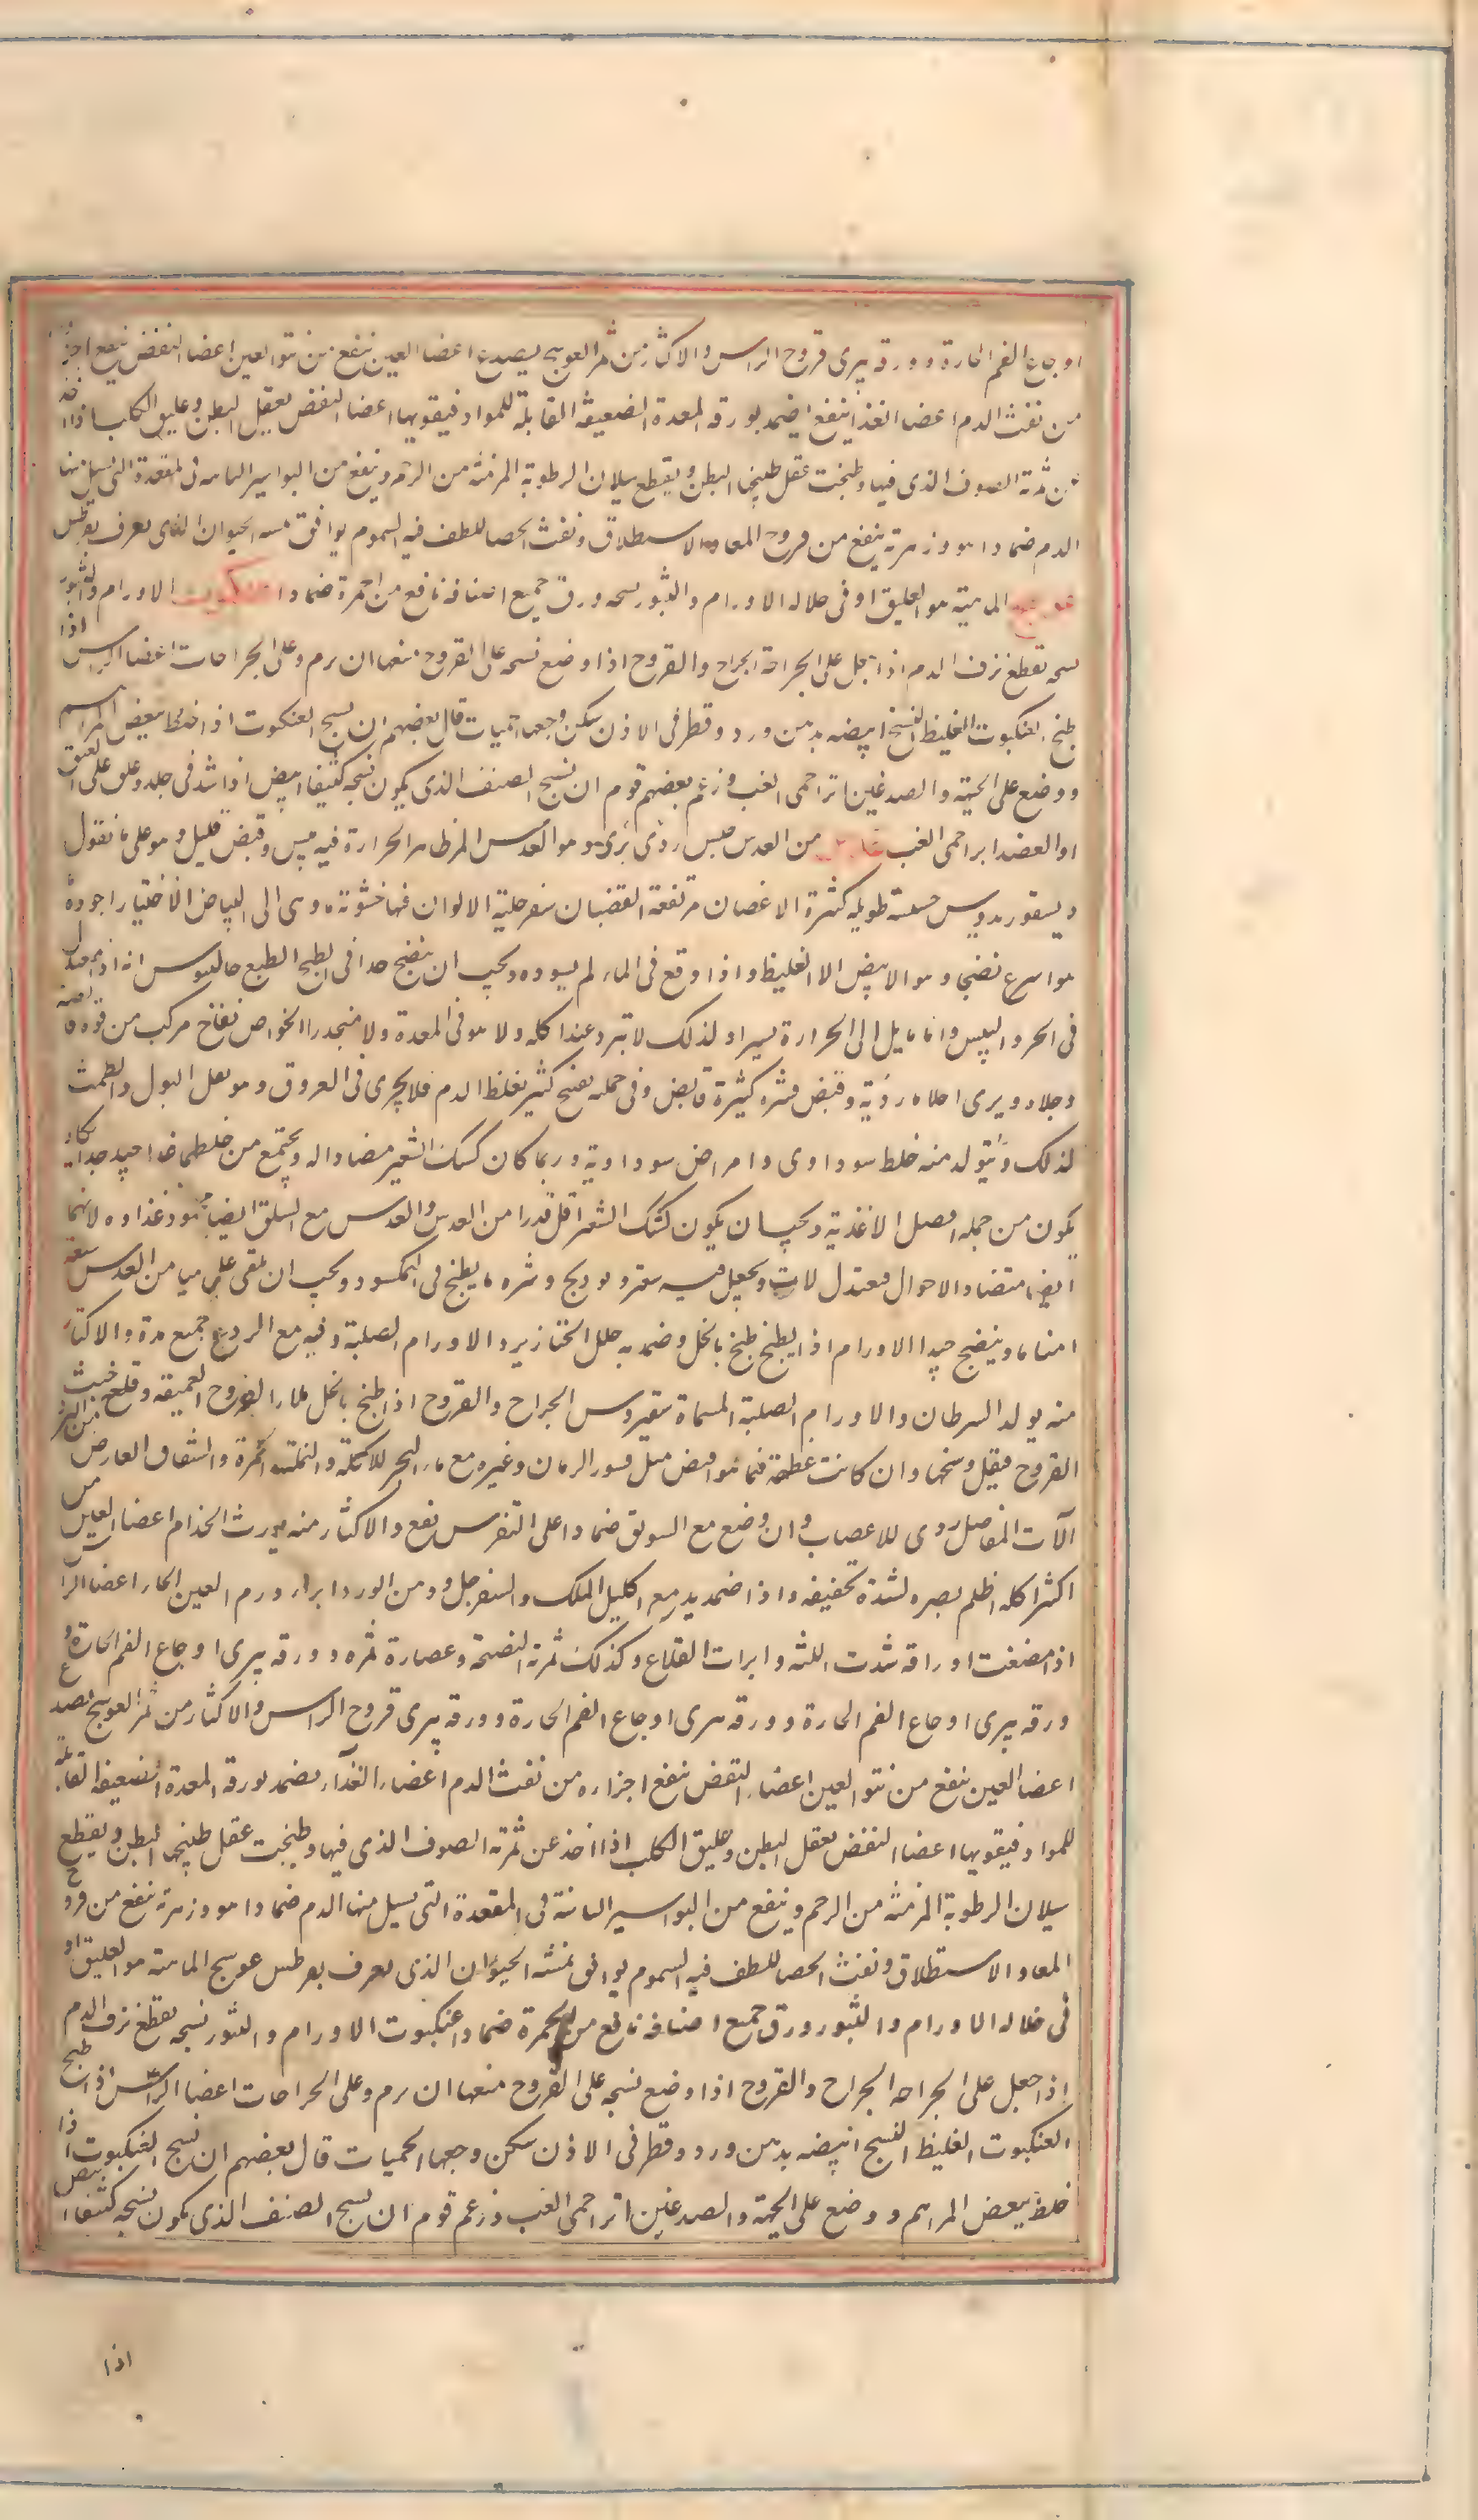 اوجاع الفم الحارة وورقه يبرى قروح الراس والاكثار من ثمر العوسج يصدع اعضا العين ينفع من نتو العين اعضا النفض ينفع اجزا
من نفث الدم اعضا الغذا ينفع ايضمد بورقه المعدة الضعيفة القابلة للمواد فيقويها اعضا النفض يعقل البطن وعليق الكلب اذا اخذ
عن ثمرته الصوف الذى فيها وطبخت عقل طبيخها البطن ويقطع سيلان الرطوبة المزمنة من الرحم وينفع من البواسير الناتيه فى المقعدة التى يسيل منها
الدم ضمادا هو وزهرته ينفع من قروح المعا والاستطلاق ونفث الحصا للطف فيه السموم يوافق نهشه الحيوان الذى يعرف بقرطس
عوسج الماهية هو العليق او فى خلاله الاورام والبثور نسجه ورق جميع اصنافه نافع من الحمرة ضمادا عنكبوت الاورام والبثور
نسجه يقطع نزف الدم اذا جعل على الجراحة الجراح والقروح اذا وضع نسجه على القروح منعها ان يرم وعلى الجراحات اعضا الراس اذا
طبخ العنكبوت الغليظ النسج ابيضه بدهن ورد وقطر فى الاذن سكن وجعها الحميات قال بعضهم ان نسج العنكبوت اذا خلط ببعض المراهم
ووضع على الجبهة والصدغين ابرا حمى الغب وزعم بعضهم قوم ان نسج الصنف الذى يكون نسجه كثيفا ابيض اذا شد فى جلد وعلق على العنق
او العضد ابرا حمى الغب عدس من العدس جنس ردى برى وهو العدس المر ظاهر الحرارة فيه يبس وقبض قليل وهو على ما نقول
ديسقوريدوس حشيشة طويلة كثيرة الاغصان مرتفعة القضبان سفرجلية الالوان فيها خشونة وهى الى البياض الاختيار اجوده
هو اسرع نضجا وهو الابيض الا الغليظ واذا وقع فى الماء لم يسوده ويجب ان ينضج جدا فى الطبخ الطبع جالينوس انه اما معتدل
فى الحر واليبس واما مايل الى الحرارة يسيرا ولذلك لا تبرد عند اكله ولا هو فى المعدة ولا منحدرا الخواص نفاخ مركب من قوة قابضة
وجلاء ويرى احلاما ردية وقبض قشره كثيرة قابض وفى جمله نفخ كثير يغلظ الدم فلا يجرى فى العروق وهو يقل البول والطمث
لذلك ويتولد منه خلط سوداوى وامراض سوداوية وربما كان كشك الشعير مضادا له ويجتمع من خلطهما غذا جيد جدا يكاد
يكون من جمله افضل الاغذية ويجب ان يكون كشك الشعير اقل قدرا من العدس والعدس مع السلق ايضا يجود غذاوه لانهما
ايضا متضادا الاحوال معتدل لات ويجعل فيه سعتر وفودنج وشره ما يطبخ فى النمكسود ويجب ان يلقى على ما من العدس سبعة
امنا ماء وينضج جيدا الاورام اذا يطبخ طبخ بالخل وضمد به حلل الخنازير والاورام الصلبة وفيه مع الردع جميع مدة والاكثار
منه يولد السرطان والاورام الصلبة المسماة سقيروس الجراح والقروح اذا طبخ بالخل ملا القروح العميقة وقلع خبث
القروح فيقل وسخها وان كانت عظيمة فيما هو اقبض مثل قشور الرمان وغيره مع ماء البحر للاكلة والنملة والحمرة والشقاق العارض من البرد
الآت المفاصل ردى للاعصاب وان وضع مع السويق ضمادا على النقرس نفع والاكثار منه يورث الجذام اعضا العين من
اكثر اكله اظلم بصره لشدة تجفيفه واذا ضمد به مع اكليل الملك والسفرجل ودهن الورد ابراء ورم العين الحار اعضا الراس
اذا مضغت اوراقه شدت اللثة وابرات القلاع وكذلك ثمرته النضجة وعصارة ثمره وورقه يبرى اوجاع الفم الحارة و
ورقه يبرى اوجاع الفم الحارة وورقه يبرى اوجاع الفم الحارة وورقه يبرى قروح الراس والاكثار من ثمر العوسج يصدع
اعضا العين ينفع من نتو العين اعضاء النفض ينفع اجزاره من نفث الدم اعضاء الغذآء يضمد بورقه المعدة الضعيفة القابلة
للمواد فيقويها اعضا النفض يعقل البطن وعليق الكلب اذا اخذ عن ثمرته الصوف الذى فيها وطبخت عقل طبيخها البطن ويقطع
سيلان الرطوبة المزمنة من الرحم وينفع من البواسير الناتية فى المقعدة التى يسيل منها الدم ضمادا هو وزهرته ينفع من قروح
المعا والاستطلاق ونفث الحصا للطف فيه السموم يوافق نهشه الحيوان الذى يعرف بقرطس عوسج الماهية هو العليق او
فى خلاله الاورام والبثور ورق جميع اصنافه نافع من الحمرة ضمادا عنكبوت الاورام والبثور نسجه يقطع نزف الدم
اذا جعل على الجراحه الجراح والقروح اذا وضع نسجه على القروح منعها ان يرم وعلى الجراحات اعضا الراس اذا طبخ
العنكبوت الغليظ النسج ابيضه بدهن ورد وقطر فى الاذن سكن وجعها الحميات قال بعضهم ان نسج العنكبوت اذا
خلط ببعض المراهم ووضع على الجبهة والصدغين ابرا حمى الغب وزعم قوم ان نسج الصنف الذى يكون نسجه كثيفا ابيض
اذا